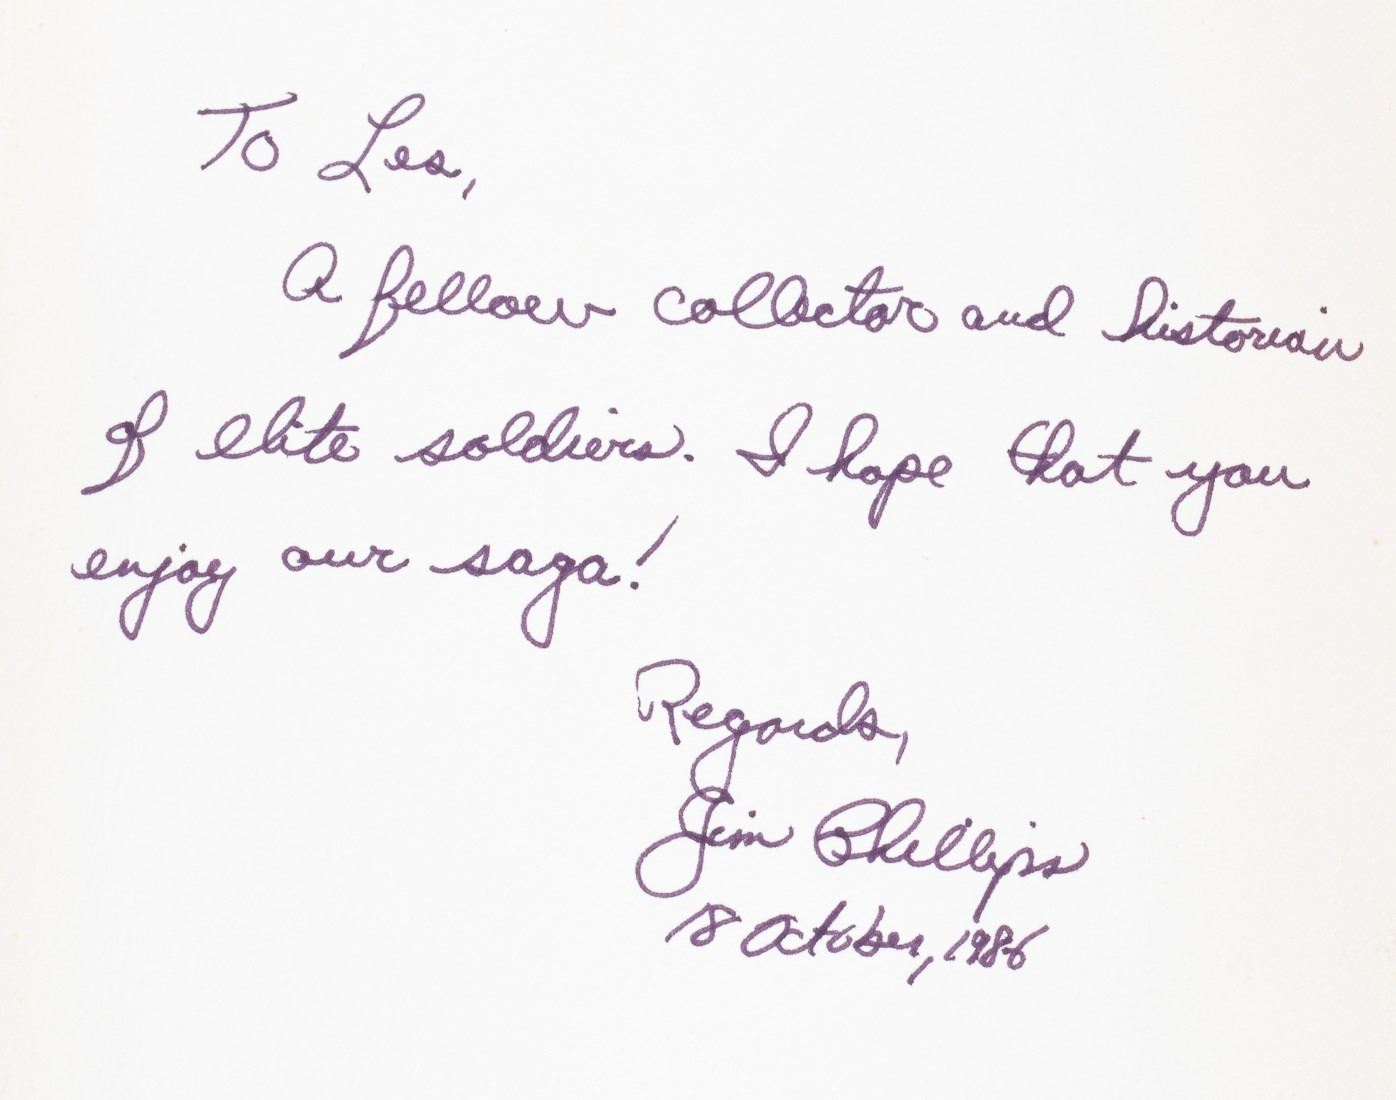 To Les,
A fellow collector and historian
of elite soldiers. I hope that you
enjoy our saga!
Regards,
Jim Phillips
8 October, 1986